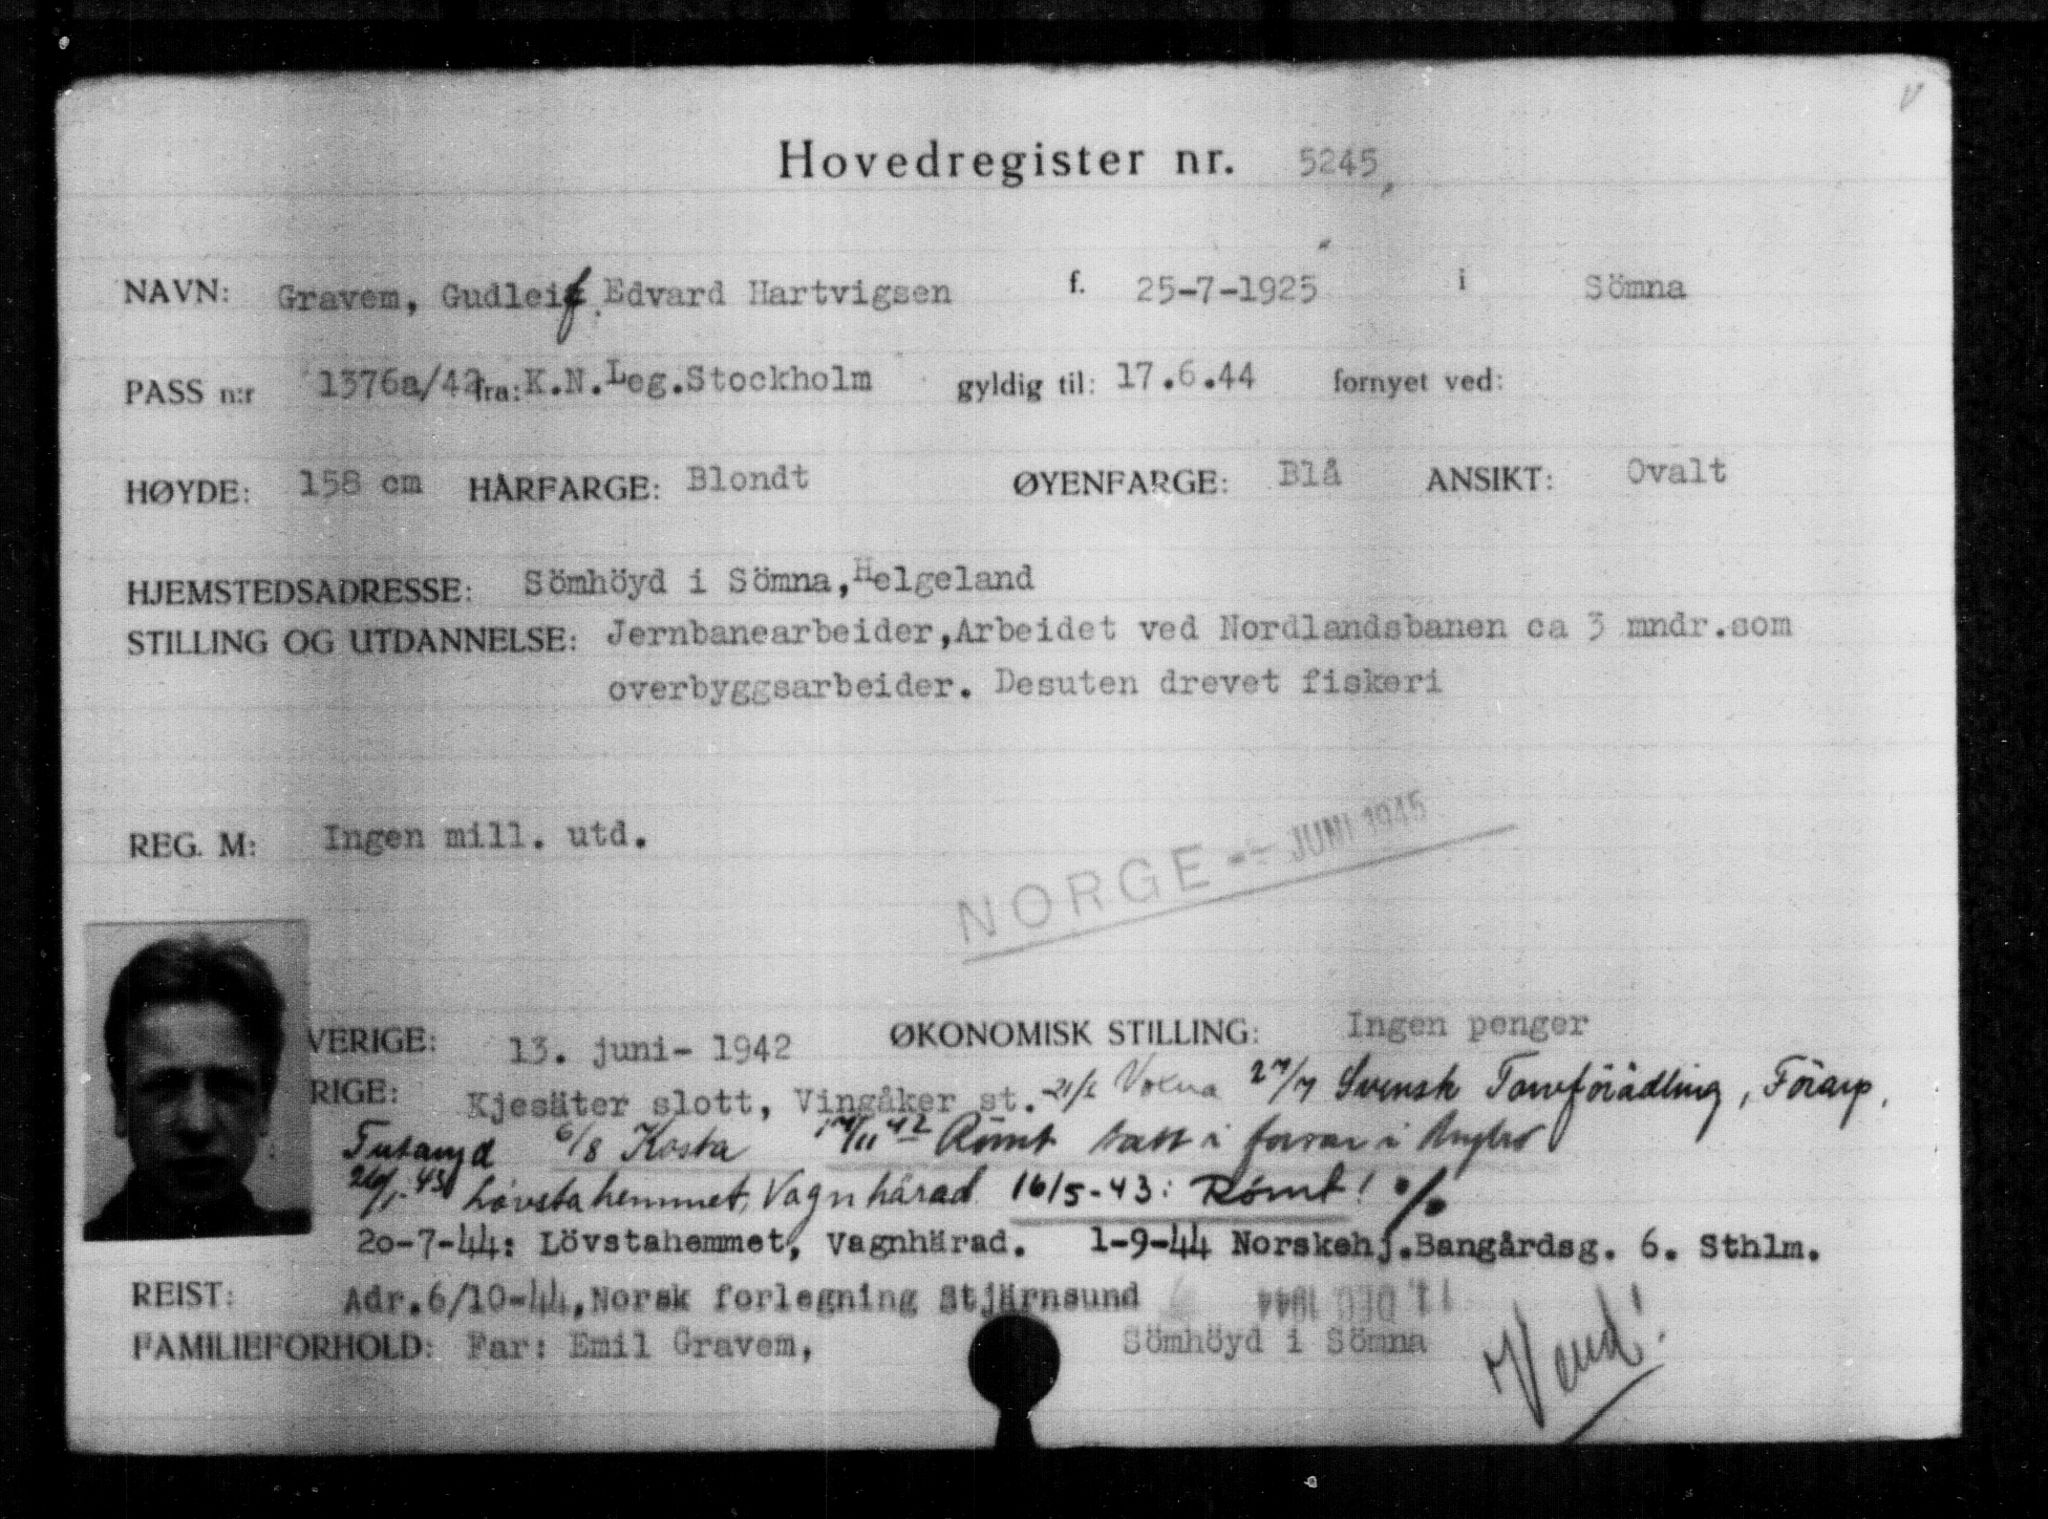 Hovedregister nr. 5245,
NAVN: Gravem, Gudleif Edvard Hartvigsen f. 25-7-1925 i Sömna
PASS n:r 1376a/42 fra: K.N.Leg.Stockholm gyldig til: 17.6.44 fornyet ved:
HØYDE: 158 cm HÅRFARGE: Blondt ØYENFARGE: Blå ANSIKT: Ovalt
HJEMSTEDSADRESSE: Sömhöyd i Sömna, Helgeland
STILLING OG UTDANNELSE: Jernbanearbeider, Arbeidet ved Nordlandsbanen ca 3 mndr.som
overbyggsarbeider. Desuten drevet fiskeri
REG. M: Ingen mill. utd.
NORGE - JUNI 1945
VERIGE: 13. juni- 1942 ØKONOMISK STILLING: Ingen penger
RIGE: Kjesäter slott, Vingåker st. Voxna 27/7 Svensk Torvförädling, Förarp,
6/8 Kosta 17/11 42 Römt satt i i
Lövstahemmet, Vagnhärad 16/5-43: Römt! %
20-7-44: Lövstahemmet, Vagnhärad. 1-9-44 Norskehj.Bangårdsg. 6. Sthlm.
REIST: Adr.6/10-44, Norsk forlegning Stjärnsund 11. DEC 1944
FAMILIEFORHOLD: Far: Emil Gravem, Sömhöyd i Sömna
Vend!